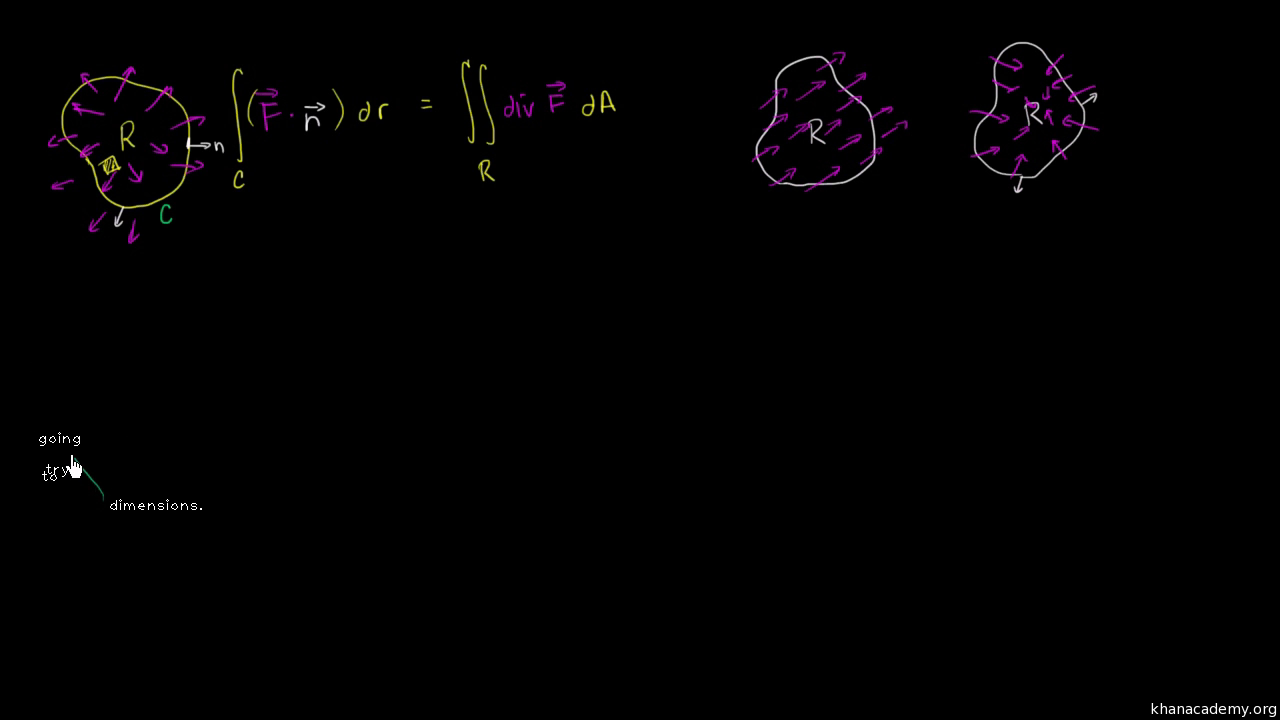 R
n
C
∫_C (F⃗ · n⃗) dr = ∬_R div F⃗ dA
R
R
going
to try
dimensions.
khanacademy.org